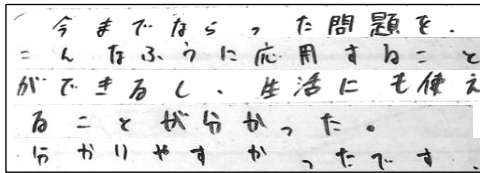 今までならった問題を、
こんなふうに応用すること
ができるし、生活にも使え
ることが分かった。
分かりやすかったです。